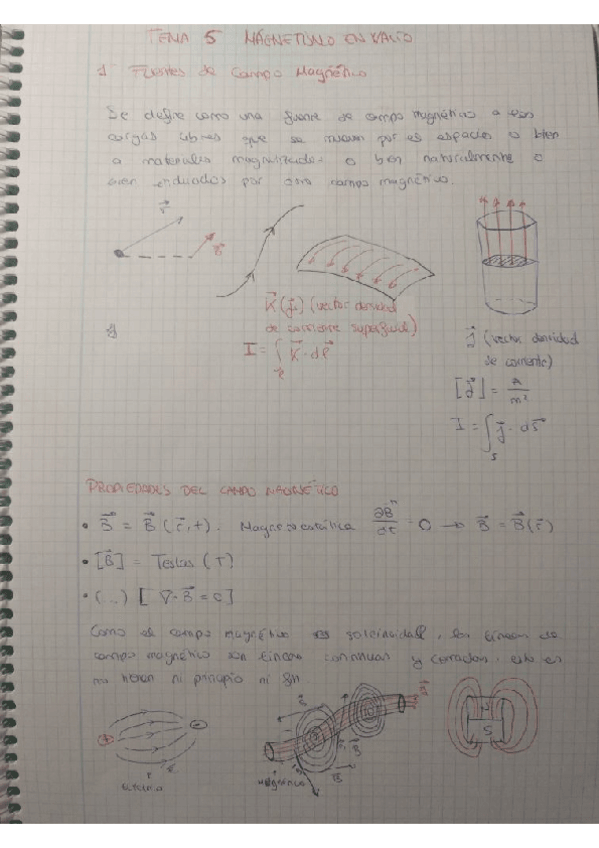 TEMA 5 MAGNETISMO EN VACÍO
1 Fuentes de Campo Magnético
Se define como una fuente de campo magnético a esas
cargas libres que se mueven por es espacio o bien
a materiales magnetizados o bien naturalmente o
bien inducidos por otro campo magnético.
r
v
K (j_s) (vector densidad
de corriente superficial)
I = ∫ K · dl
j (vector densidad
de corriente)
[j] = A/m²
I = ∫_s j · ds
PROPIEDADES DEL CAMPO MAGNÉTICO
• B = B (r, t). Magnetostática ∂B/∂t = 0 → B = B(r)
• [B] = Teslas (T)
• (...) [ ∇·B = 0 ]
Como el campo magnético es solenoidal, las líneas de
campo magnético son líneas continuas y cerradas, esto es
no tienen ni principio ni fin
+ −
B
magnético
S